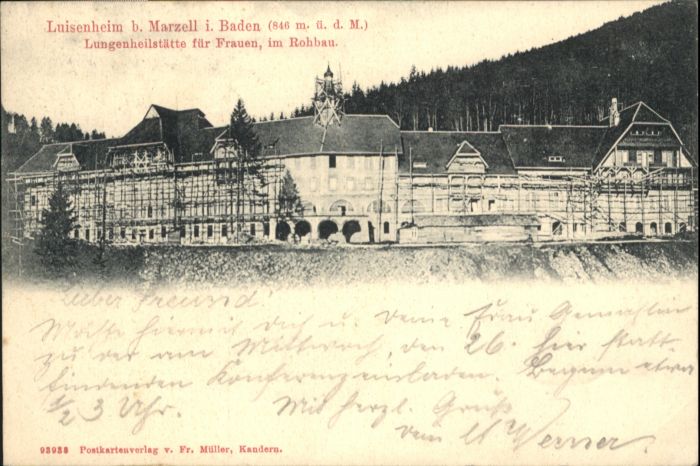 Luisenheim b. Marzell i. Baden (846 m. ü. d. M.)
Lungenheilstätte für Frauen, im Rohbau.
Lieber Freund!
Möchte hiermit dich u. deine Frau Gemahlin
zu der am Mittwoch, den 26. hier statt
findenden Konferenz einladen. Beginn etwa
1/2 3 Uhr. Mit herzl. Gruß
dein Werner
93933 Postkartenverlag v. Fr. Müller, Kandern.